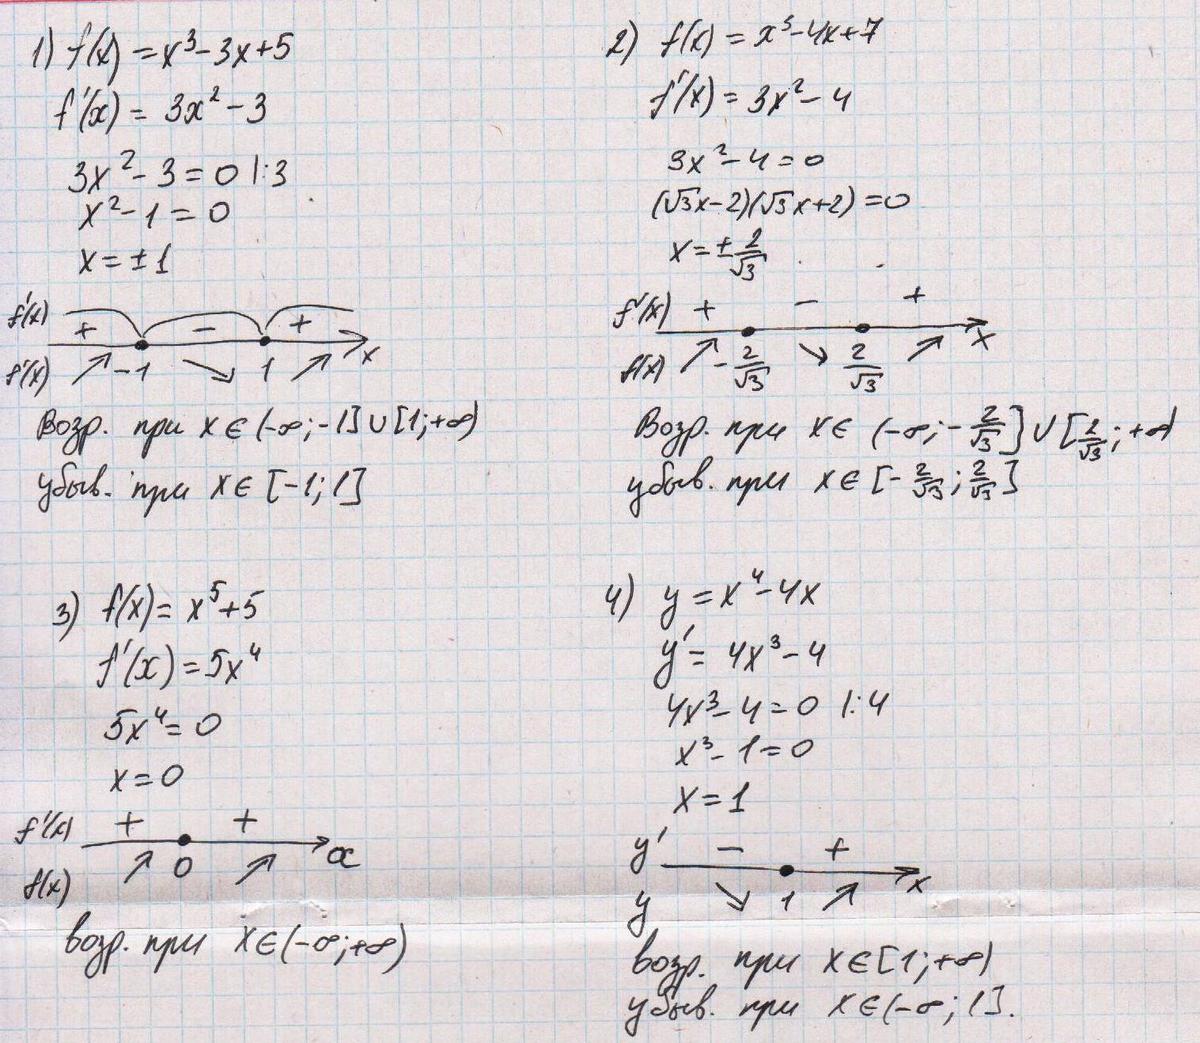 1) f(x) = x³ - 3x + 5
f'(x) = 3x² - 3
3x² - 3 = 0 |:3
x² - 1 = 0
x = ±1
f'(x) + - + x
f'(x) ↗ -1 ↘ 1 ↗
Возр. при x ∈ (-∞; -1] ∪ [1; +∞)
убыв. при x ∈ [-1; 1]
2) f(x) = x³ - 4x + 7
f'(x) = 3x² - 4
3x² - 4 = 0
(√3x - 2)(√3x + 2) = 0
x = ± 2/√3
f'(x) + - + x
f(x) ↗ -2/√3 ↘ 2/√3 ↗
Возр. при x ∈ (-∞; -2/√3] ∪ [2/√3; +∞)
убыв. при x ∈ [-2/√3; 2/√3]
3) f(x) = x⁵ + 5
f'(x) = 5x⁴
5x⁴ = 0
x = 0
f'(x) + + x
f(x) ↗ 0 ↗
возр. при x ∈ (-∞; +∞)
4) y = x⁴ - 4x
y' = 4x³ - 4
4x³ - 4 = 0 |:4
x³ - 1 = 0
x = 1
y' - + x
y ↘ 1 ↗
возр. при x ∈ [1; +∞)
убыв. при x ∈ (-∞; 1].